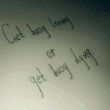 Get busy living
or
get busy dying.